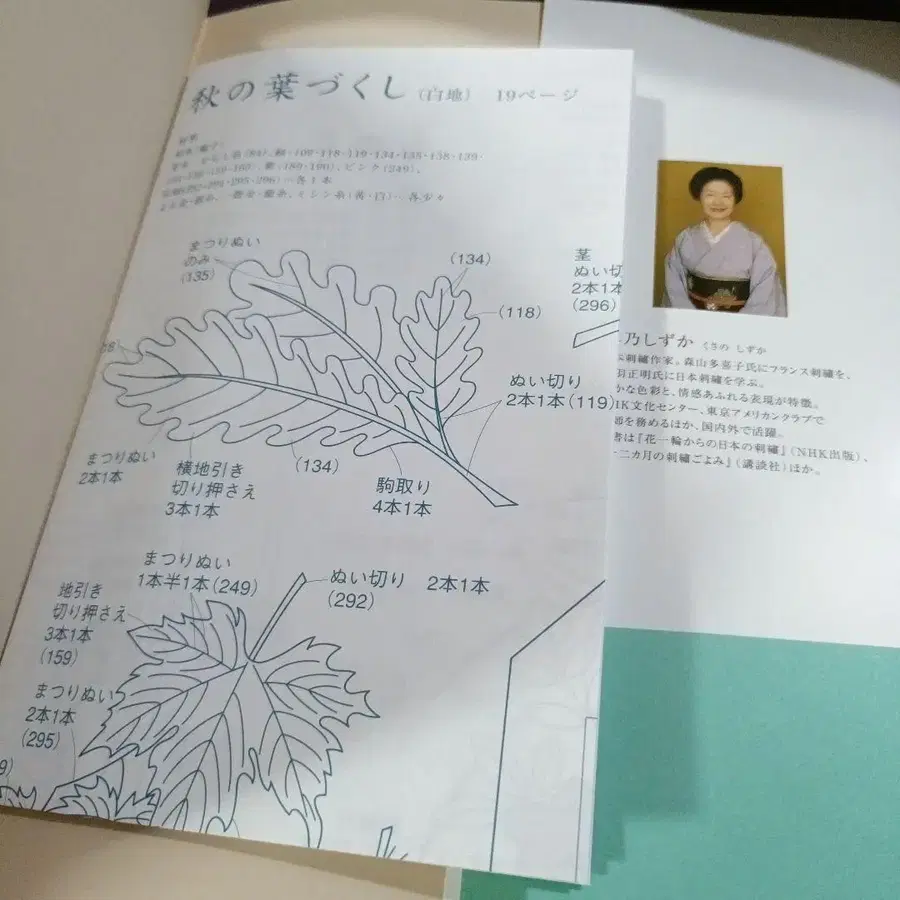 秋の葉づくし(白地) 19ページ
まつりぬい
のみ
(135)
(134)
(118)
ぬい切り
2本1本(119)
茎
ぬい切
2本1本
(296)
まつりぬい
2本1本
横地引き
切り押さえ
3本1本
(134)
駒取り
4本1本
まつりぬい
1本半1本(249)
ぬい切り 2本1本
(292)
地引き
切り押さえ
3本1本
(159)
まつりぬい
2本1本
(295)
9)
乃しずか くさの しずか
刺繍作家。森山多喜子氏にフランス刺繍を、
正明氏に日本刺繍を学ぶ。
かな色彩と、情感あふれる表現が特徴。
HK文化センター、東京アメリカンクラブで
師を務めるほか、国内外で活躍。
書は『花一輪からの日本の刺繍』(NHK出版)、
十二カ月の刺繍ごよみ』(講談社)ほか。